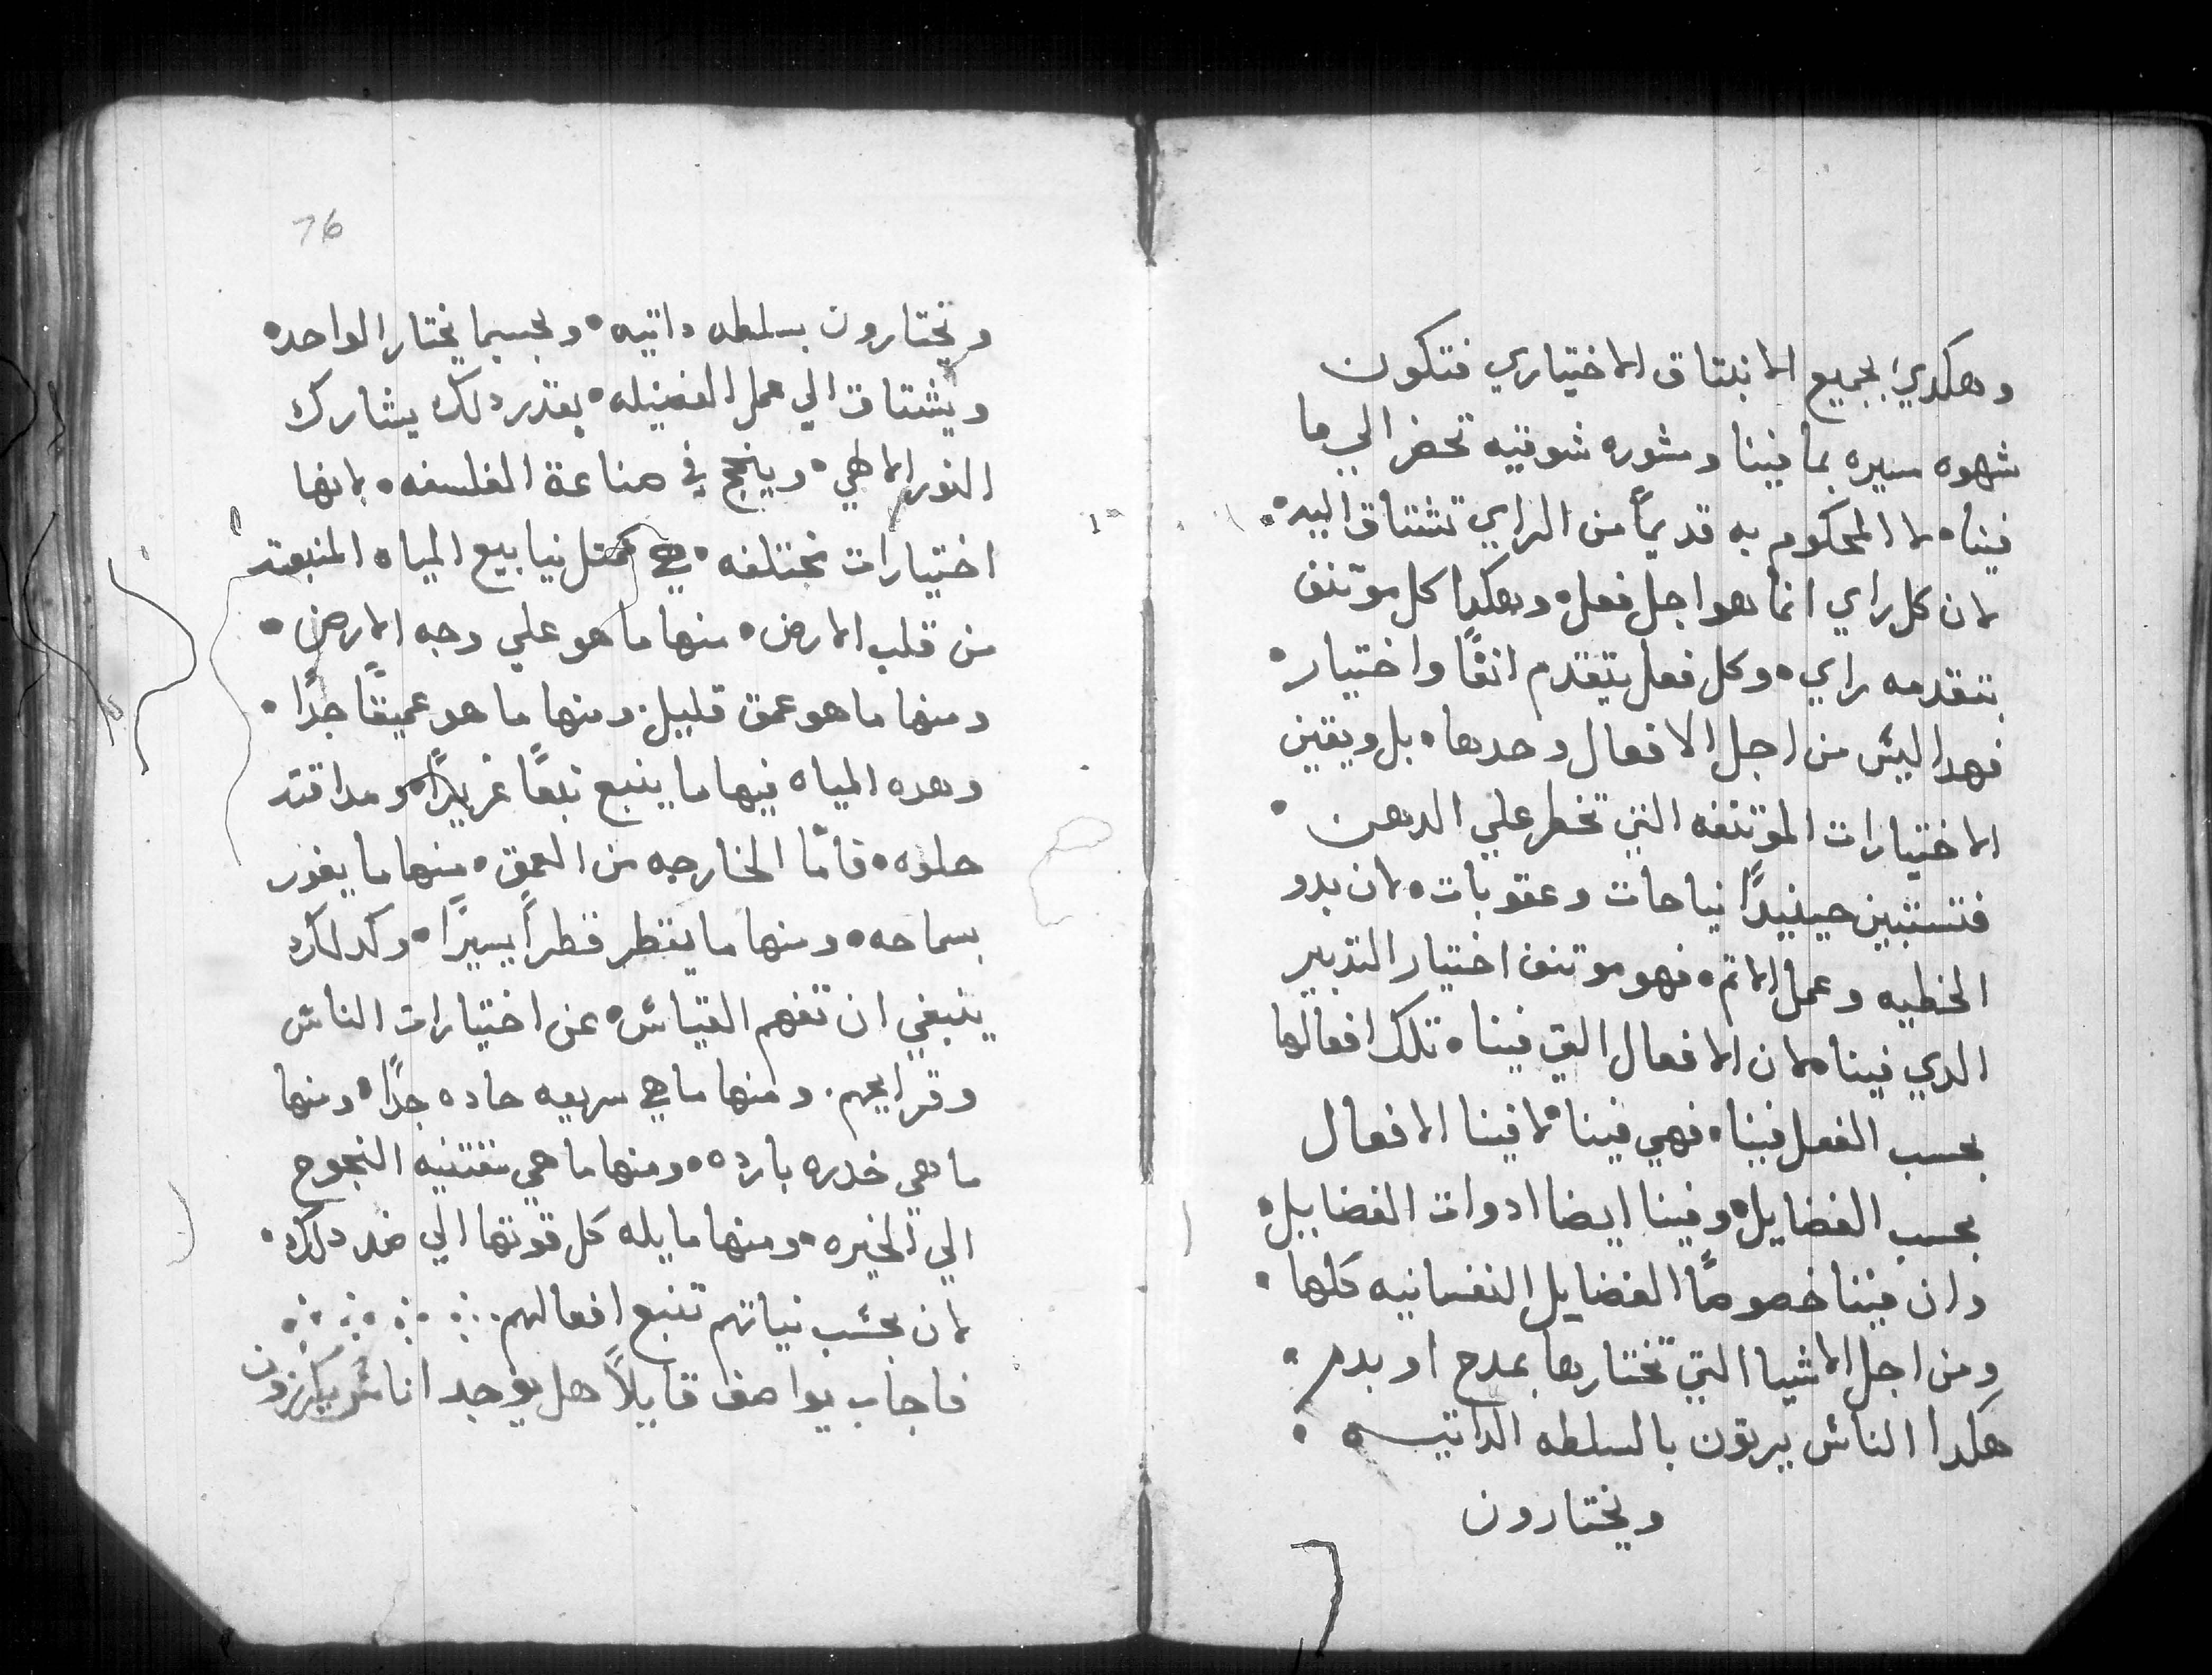 وهكدي بجميع الانبتاق الاختياري فتكون
شهوه سيره بما فينا ومشوره شوقيه تحضر الي ما
فينا • لا المحكوم به قديمًا من الراي تشتاق اليه •
لان كل راي انما هو اجل فعل • وهكدا كل موتنف
يتقدمه راي • وكل فعل يتقدم انفًا واختيار •
فهدا ليس من اجل الافعال وحدها • بل ويقين
الاختيارات الموتنفه التي تخطر علي الدهن •
فتستبين حينيدًا نياحات وعقوبات • لان بدو
الخطيه وعمل الاتم • فهو موتنف اختيار التدبير
الدي فينا • لان الافعال التي فينا • تلك افعالها
بحسب الفعل فينا • فهي فينا • لافينا الافعال
بحسب الفضايل • وفينا ايضا ادوات الفضايل •
وان فينا خصوصًا الفضايل النفسانيه كلها •
ومن اجل الاشيا التي تختارها بمدح او بدم •
هكدا الناس يرتون بالسلطه الداتيه •
ويختارون
76
ويختارون بسلطه داتيه • وبحسبما يختار الواحد •
ويشتاق الي عمل الفضيله • بقدر دلك يشارك
النور الالهي • وينجح في صناعة الفلسفه • لانها
اختيارات مختلفه • هي كمتل نيابيع المياه المنبعته
من قلب الارض • منها ما هو علي وجه الارض •
ومنها ما هو عمق قليل. ومنها ما هو عميقًا جدًا •
وهده المياه فيها ما ينبع نبعًا غريرًا • ومداقته
حلوه • فامّا الخارجه من العمق • منها ما يفور
بسماحه • ومنها ما يقطر قطرًا يسيرًا • وكدلك
ينبغي ان تفهم القياس • عن اختيارات الناس
وقرايحهم. ومنها ما هي سريعه حاده جدًا • ومنها
ما هي خدره بارده • ومنها ما هي مقتنيه النجوح
الي الخيره • ومنها مايله كل قوتها الي ضد دلك •
لان بحسب نياتهم تتبع افعالهم.
فاجاب يواصف قايلاً هل يوجد اناس يكرزون